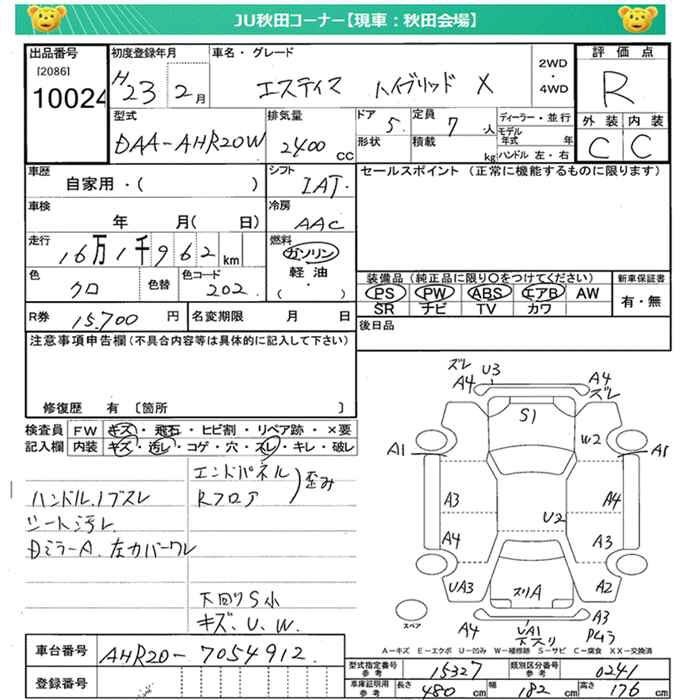 JU秋田コーナー【現車：秋田会場】
出品番号
[2086]
10024
初度登録年月
H23 2月
車名・グレード
エスティマ ハイブリッド X
2WD
・
4WD
評価点
R
外装 内装
C C
型式
DAA-AHR20W
排気量
2400 CC
ドア 5
形状
定員 7人
積載 kg
ディーラー・並行
モデル年式 年
ハンドル 左・右
車歴
自家用・( )
シフト
IAT
セールスポイント（正常に機能するものに限ります）
車検
年 月( 日)
冷房
AAC
走行
16万1千962km
燃料
ガソリン
軽油
( ・ )
色
クロ
色替
色コード
202
装備品（純正品に限り○をつけてください）
PS PW ABS エアB AW
SR ナビ TV カワ
新車保証書
有・無
R券 15,700円
名変期限 月 日
後日品
注意事項申告欄(不具合内容等は具体的に記入して下さい)
修復歴 有〔箇所 〕
検査員記入欄
FW キズ・飛石・ヒビ割・リペア跡・×要
内装 キズ・汚レ・コゲ・穴・スレ・キレ・破レ
エンドパネル
Rフロア
歪み
ハンドル、ノブスレ
シート汚レ
DミラーA、左カバーワレ
下回りS小
キズ、U、W、
ズレ
A4
U3
A4
ズレ
S1
W2
A1
A1
A3
A4
U2
A4
A3
UA3
スリA
A2
スペア
A4
UA1
下スリ
A3
A−キズ E−エクボ U−凹み W−補修跡 S−サビ C−腐食 XX−交換済
車台番号
AHR20-7054912
登録番号
型式指定番号 参考 15327
類別区分番号 参考 0241
車庫証明用 参考
長さ 480cm
幅 182cm
高さ 176cm